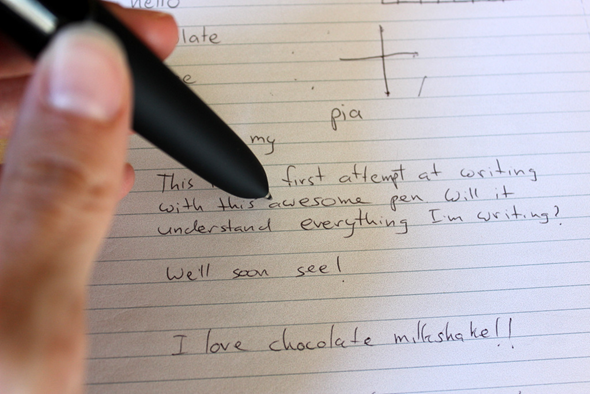 hello
late
e
pia
my
This first attempt at writing
with this awesome pen will it
understand everything I'm writing?
We'll soon see!
I love chocolate milkshake!!